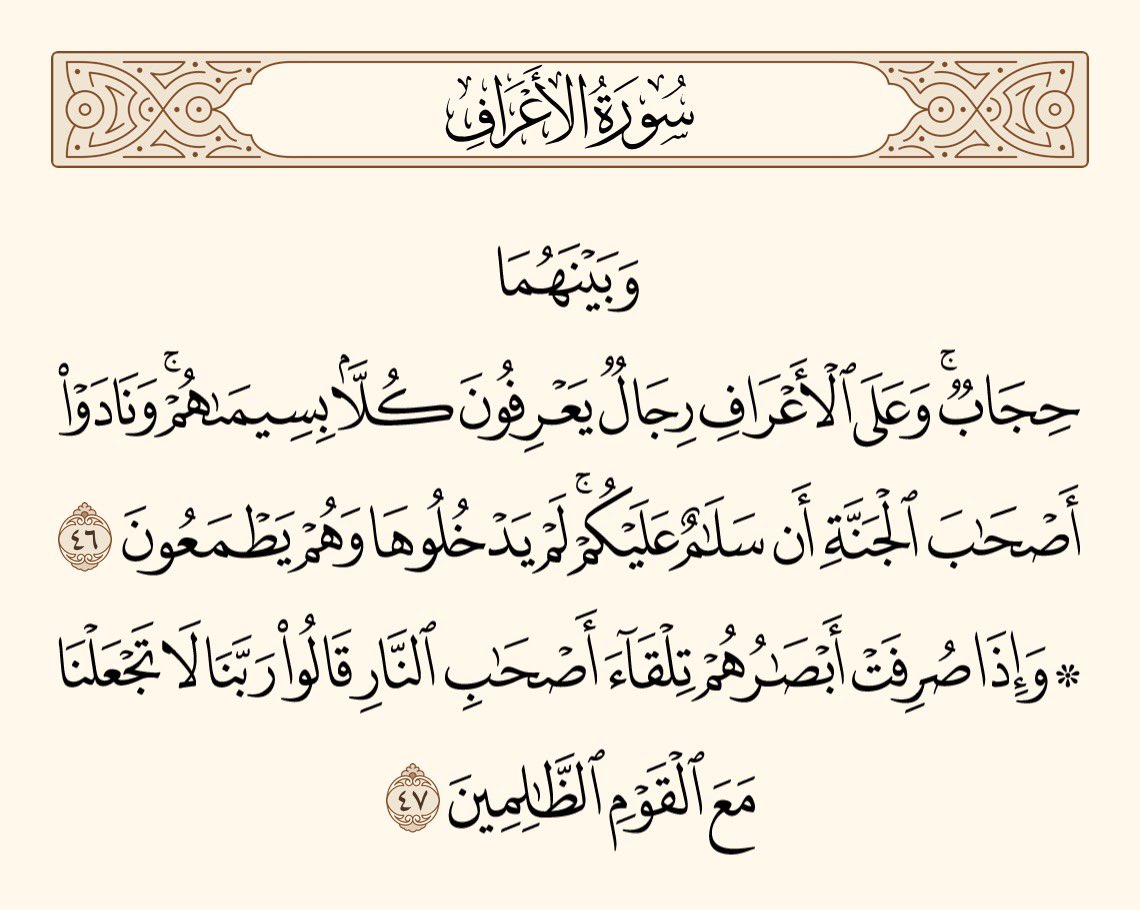 سُورَةُ الأَعْرَافِ
وَبَيْنَهُمَا
حِجَابٌۚ وَعَلَى ٱلْأَعْرَافِ رِجَالٌ يَعْرِفُونَ كُلَّۢا بِسِيمَىٰهُمْۚ وَنَادَوْا۟
أَصْحَٰبَ ٱلْجَنَّةِ أَن سَلَٰمٌ عَلَيْكُمْۚ لَمْ يَدْخُلُوهَا وَهُمْ يَطْمَعُونَ ٤٦
* وَإِذَا صُرِفَتْ أَبْصَٰرُهُمْ تِلْقَآءَ أَصْحَٰبِ ٱلنَّارِ قَالُوا۟ رَبَّنَا لَا تَجْعَلْنَا
مَعَ ٱلْقَوْمِ ٱلظَّٰلِمِينَ ٤٧